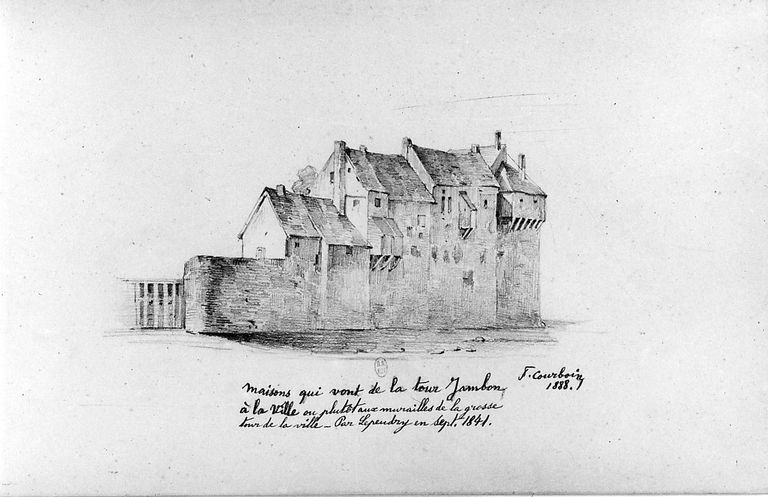 maisons qui vont de la tour Jambon,
à la ville ou plutôt aux murailles de la grosse
tour de la ville _ Par Lependry en sept. 1841.
F. Courboin
1888.